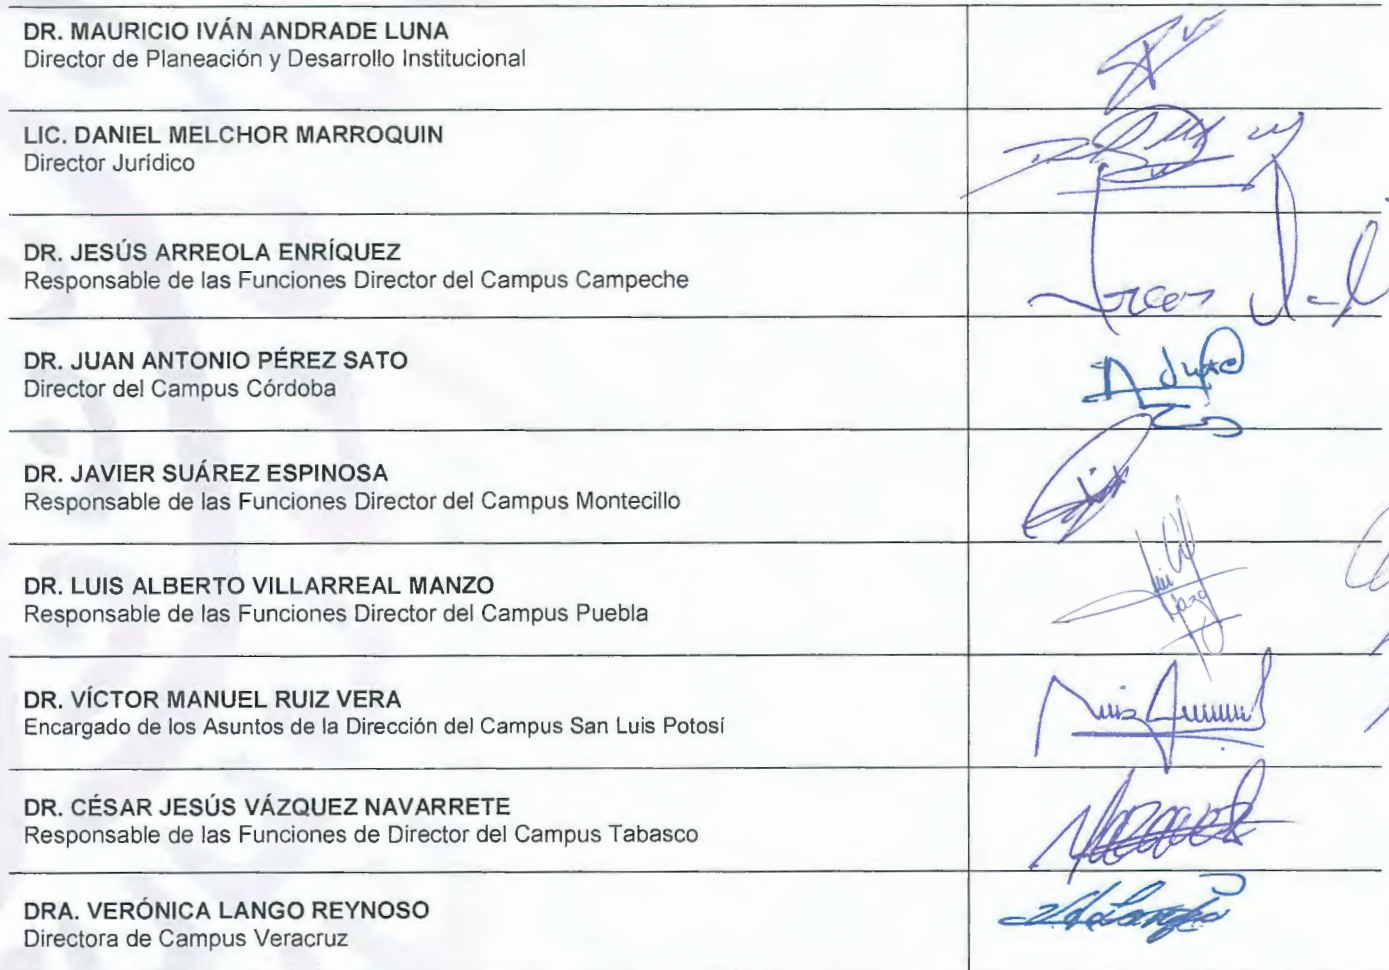 DR. MAURICIO IVÁN ANDRADE LUNA
Director de Planeación y Desarrollo Institucional
LIC. DANIEL MELCHOR MARROQUIN
Director Jurídico
DR. JESÚS ARREOLA ENRÍQUEZ
Responsable de las Funciones Director del Campus Campeche
DR. JUAN ANTONIO PÉREZ SATO
Director del Campus Córdoba
DR. JAVIER SUÁREZ ESPINOSA
Responsable de las Funciones Director del Campus Montecillo
DR. LUIS ALBERTO VILLARREAL MANZO
Responsable de las Funciones Director del Campus Puebla
DR. VÍCTOR MANUEL RUIZ VERA
Encargado de los Asuntos de la Dirección del Campus San Luis Potosí
DR. CÉSAR JESÚS VÁZQUEZ NAVARRETE
Responsable de las Funciones de Director del Campus Tabasco
DRA. VERÓNICA LANGO REYNOSO
Directora de Campus Veracruz